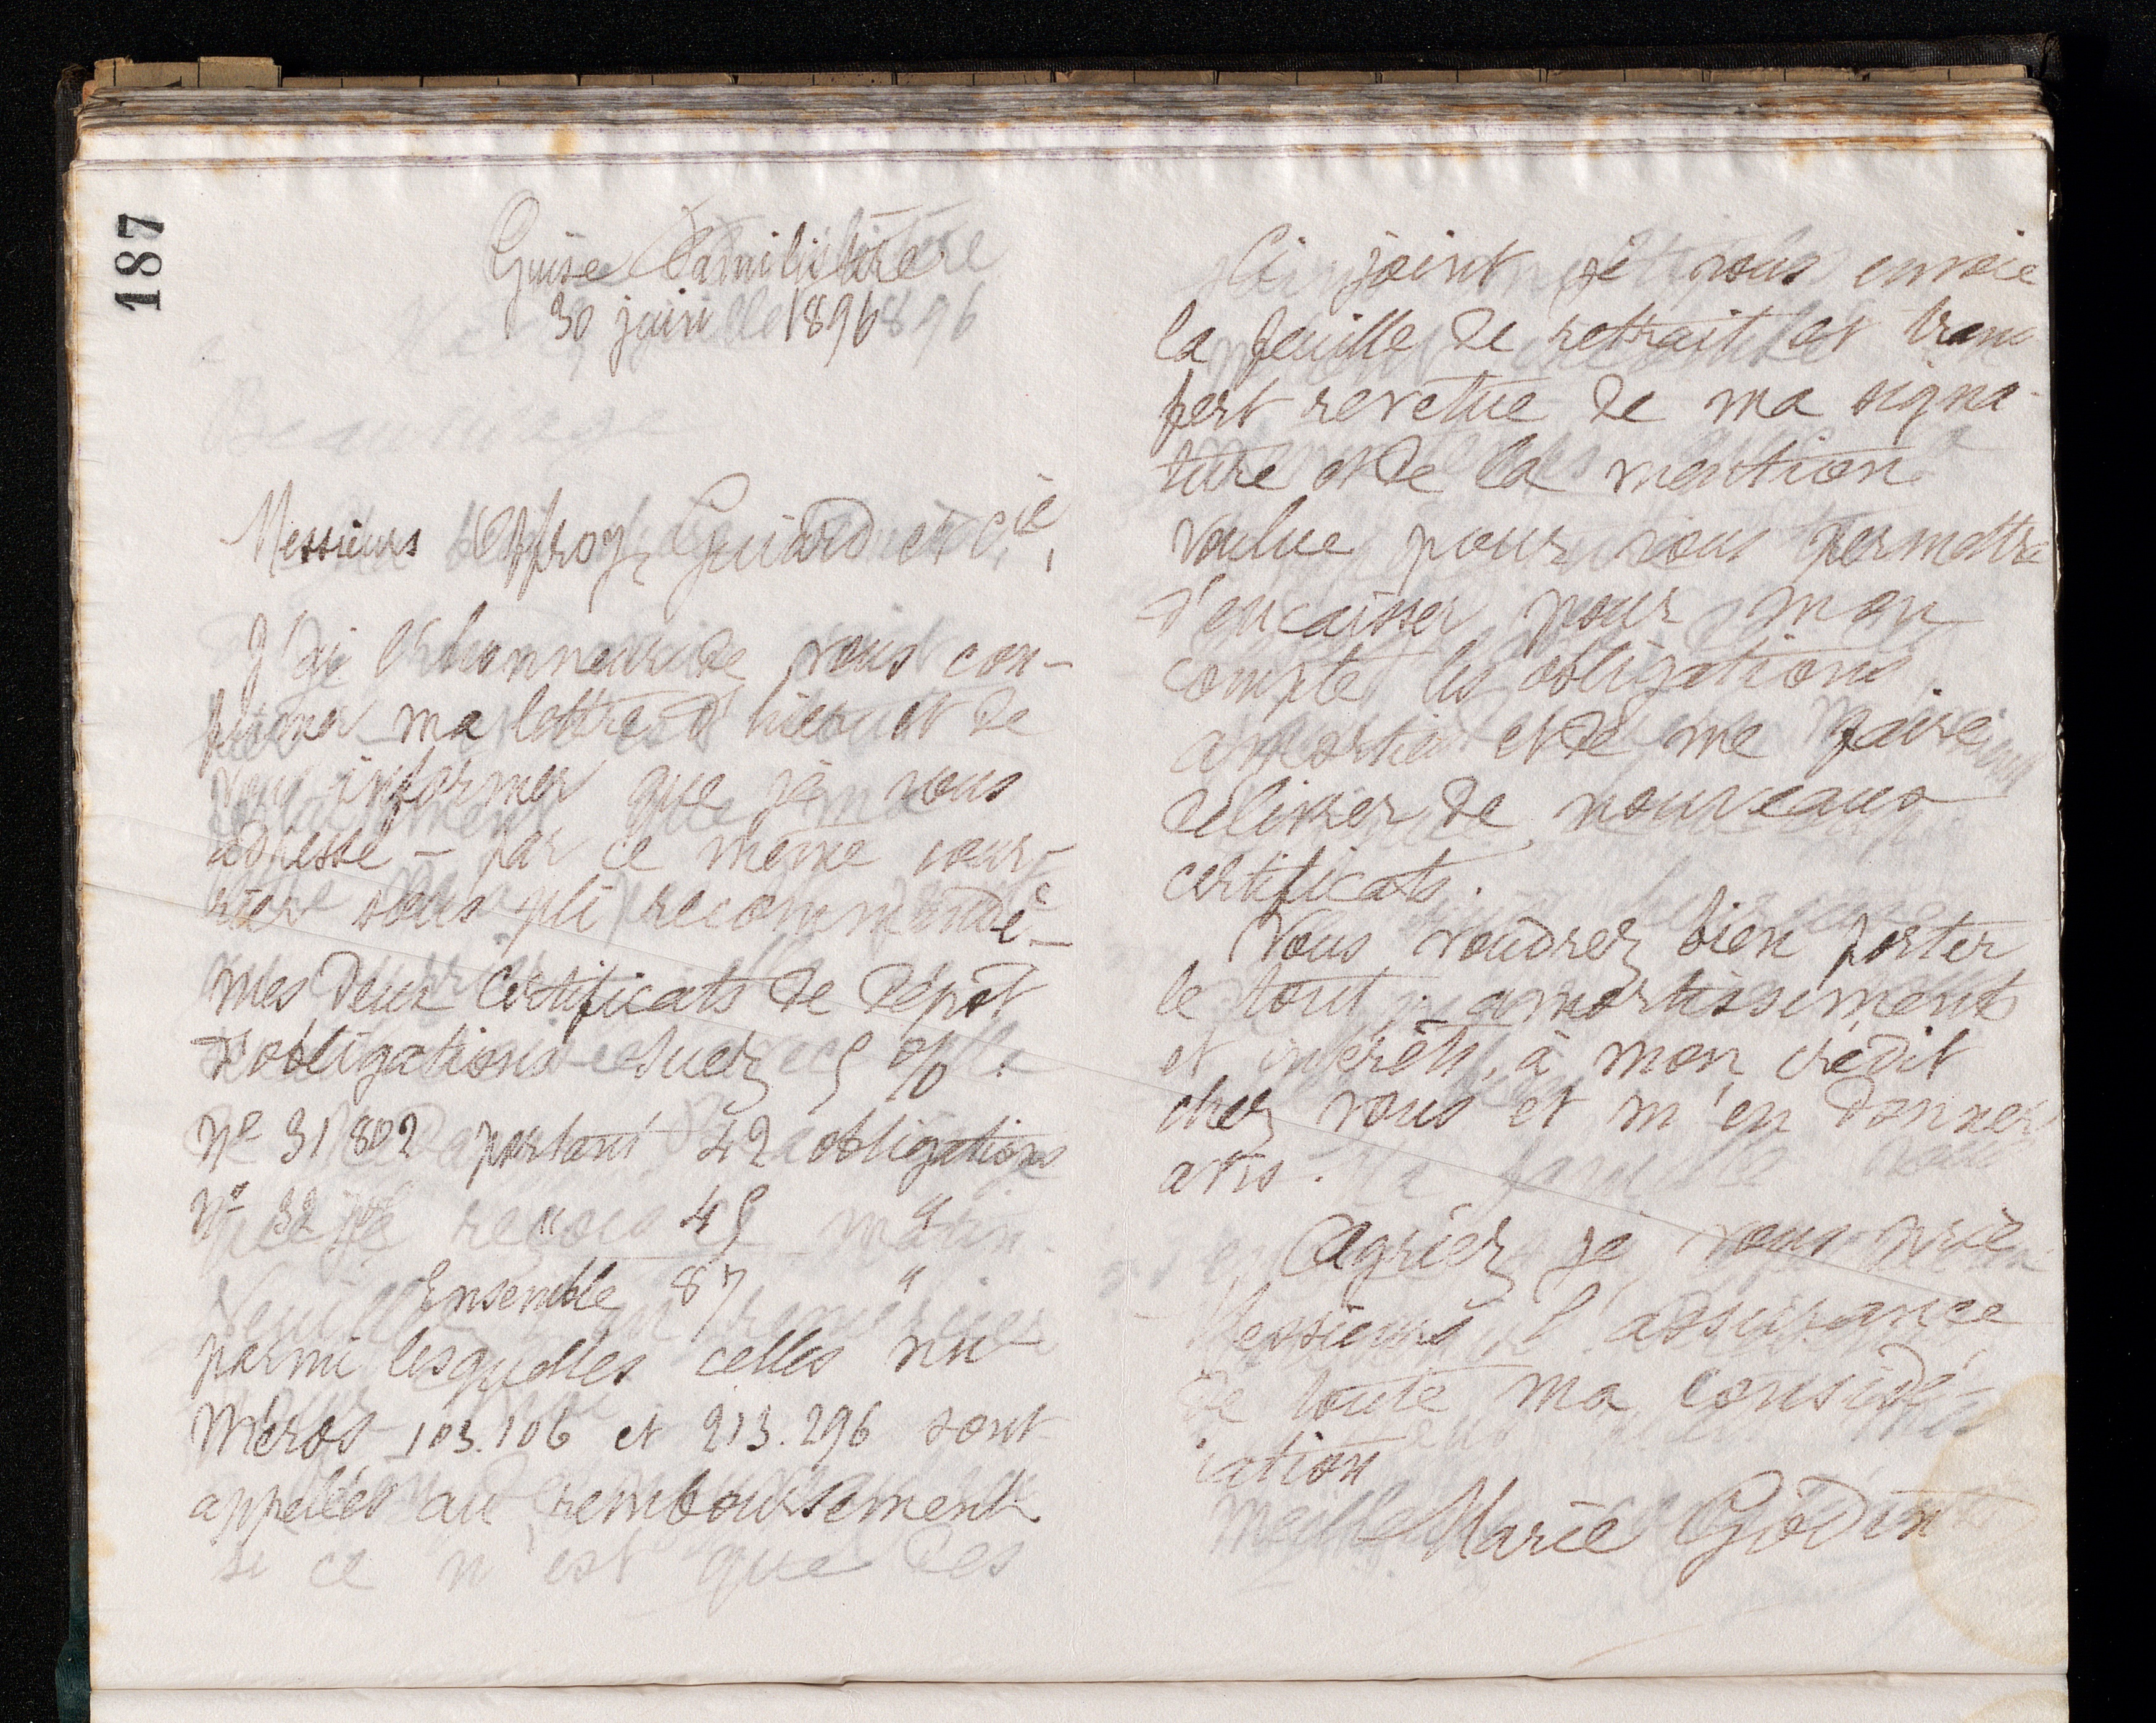 187
Guise Familistère
30 juin 1896
Messieurs Offroy, Guiard et Cie,
J'ai l'honneur de vous con-
firmer ma lettre d'hier et de
vous informer que je vous
adresse – par ce même cour-
rier sous pli recommandé –
mes deux certificats de dépôt
d'obligations Suez 5 % :
No 31 802 portant 42 obligations
No 32 " 45 "
Ensemble 87 "
parmi lesquelles celles nu-
méros 103.106 et 213.296 sont
appelées au remboursement.
Ci joint je vous envoie
la feuille de retrait et trans
fert revetue de ma signa-
ture et de la mention
voulue pour vous permettre
d'encaisser pour mon
compte les obligations
amorties et de me faire
délivrer de nouveaux
certificats.
Vous voudrez bien porter
le tout, amortissements
et intérêts, à mon crédit
chez vous et m'en donner
avis.
Agréez, je vous prie
Messieurs, l'assurance
de toute ma considé-
ration
Marie Godin